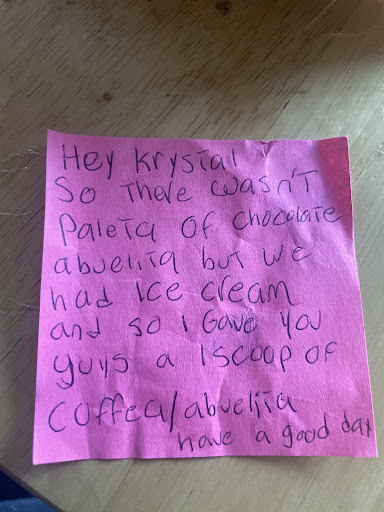 Hey Krystal
So there wasn't
Paleta of chocolate
abuelita but we
had ice cream
and so i Gave you
guys a 1 scoop of
coffea/abuelita
have a good day